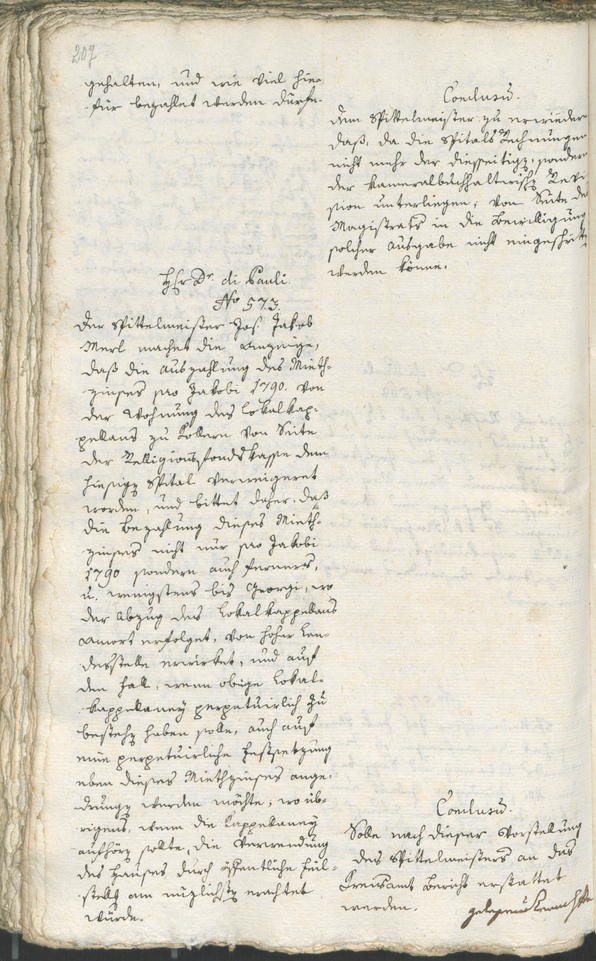 207
gehalten, und wie viel hie-
für bezahlet werden dürfe.
Conclusum.
dem Spittelmeister zu erwiedern
daß, da die Spitals Rechnungen
nicht mehr der diesseitigen, sondern
der kameralbuchhalterischen Revi-
sion unterliegen, von Seite des
Magistrats in die Bewilligung
solcher Ausgabe nicht eingeschritten
werden könne.
Hr Dr. di Pauli.
No 573.
Der Spittelmeister Jos. Jakob
Merl machet die Anzeige,
daß die Auszahlung des Mieth-
zinses pro Jakobi 1790. von
der Wohnung des Lokalkap-
pellans zu Kollern von Seite
der Religionsfondskasse dem
hiesigen Spital verweigeret
worden, und bittet daher, daß
die Bezahlung dieses Mieth-
zinses nicht nur pro Jakobi
1790 sondern auch ferners,
u. wenigstens bis Georgi, wo
der Abzug des Lokalkappellans
Amort erfolget, von hoher Lan-
desstelle erwirket, und auf
den Fall, wenn obige Lokal-
kappellaney perpetuirlich zu
bestehen haben solle, auch auf
eine perpetuirliche Festsetzung
eben dieses Miethzinses ange-
drungen werden möchte, wo üb-
rigens, wenn die Kappellaney
aufhören sollte, die Verwendung
des Hauses durch öffentliche Feil-
stellung am nützlichsten erachtet
wurde.
Conclusum.
Solle nach dieser Vorstellung
des Spittelmeisters an das
Kreisamt Bericht erstattet
werden.